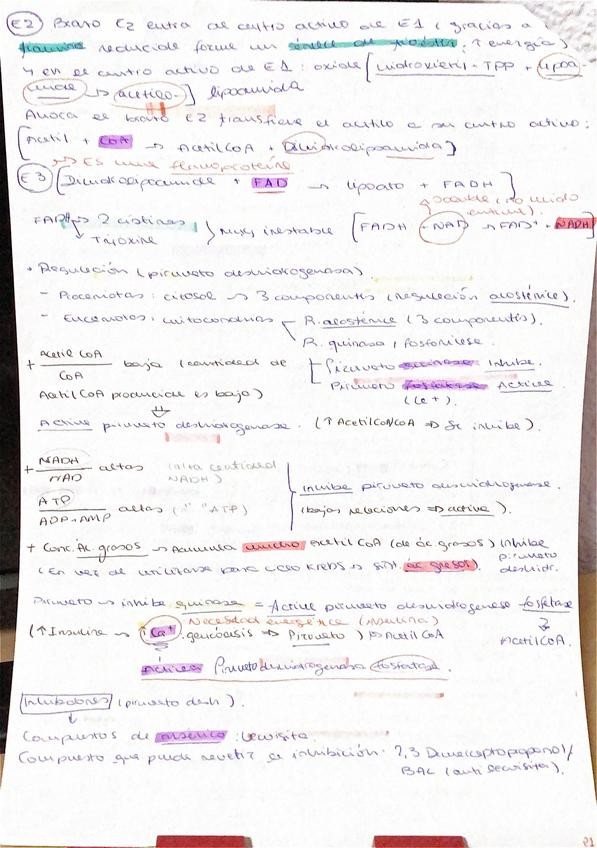 E2 Brazo E2 entra al centro activo de E1 (gracias a
tiamina reducida forma un de ↑ energía)
↳ en el centro activo de E1: oxida [hidroxietil-TPP + lipoa-
mida → acetilo-] lipoamida
Ahora el brazo E2 transfiere el acetilo a su centro activo:
[Acetil + CoA → AcetilCoA + Dihidrolipoamida]
→ Es una flavoproteína
E3 [Dihidrolipoamida + FAD → lipoato + FADH]
soluble (no unido
enzima).
FAD 2 cistinas } Muy inestable [FADH + NAD → FAD + NADH]
Tiroxina
+ Regulación (piruvato deshidrogenasa).
- Procariotas: citosol → 3 componentes (regulación alostérica).
- Eucariotas: mitocondrias R. alostérica (3 componentes).
R. quinasa / fosforilasa
+ Acetil CoA / CoA baja (cantidad de
AcetilCoA producida es bajo)
Piruvato quinasa Inhibe.
Piruvato fosfatasa Activa
(Ca+).
⇓
Activa piruvato deshidrogenasa. (↑ AcetilCoA/CoA ⇒ Se inhibe).
+ NADH / NAD altas (alta cantidad
NADH)
ATP / ADP+AMP altas (" " ATP)
Inhibe piruvato deshidrogenasa.
(bajas relaciones ⇒ activa).
+ Conc. Ác. grasos → Aumenta mucho acetil CoA (de ác grasos) Inhibe
piruvato
deshidr.
(En vez de utilizarse para ciclo Krebs → sint. ác grasos).
Piruvato → inhibe quinasa = Activa piruvato deshidrogenasa fosfatasa
Necesidad energética (insulina)
(↑ Insulina → ↑ Ca+ glucólisis ⇒ Piruvato) ⇒ AcetilCoA
AcetilCoA.
Activa Piruvato deshidrogenasa fosfatasa.
Inhibidores (piruvato desh).
↓
Compuestos de arsénico: Lewisita.
Compuesto que puede revertir la inhibición: 2,3 Dimercaptopropanol/
BAL (anti Lewisita).
21